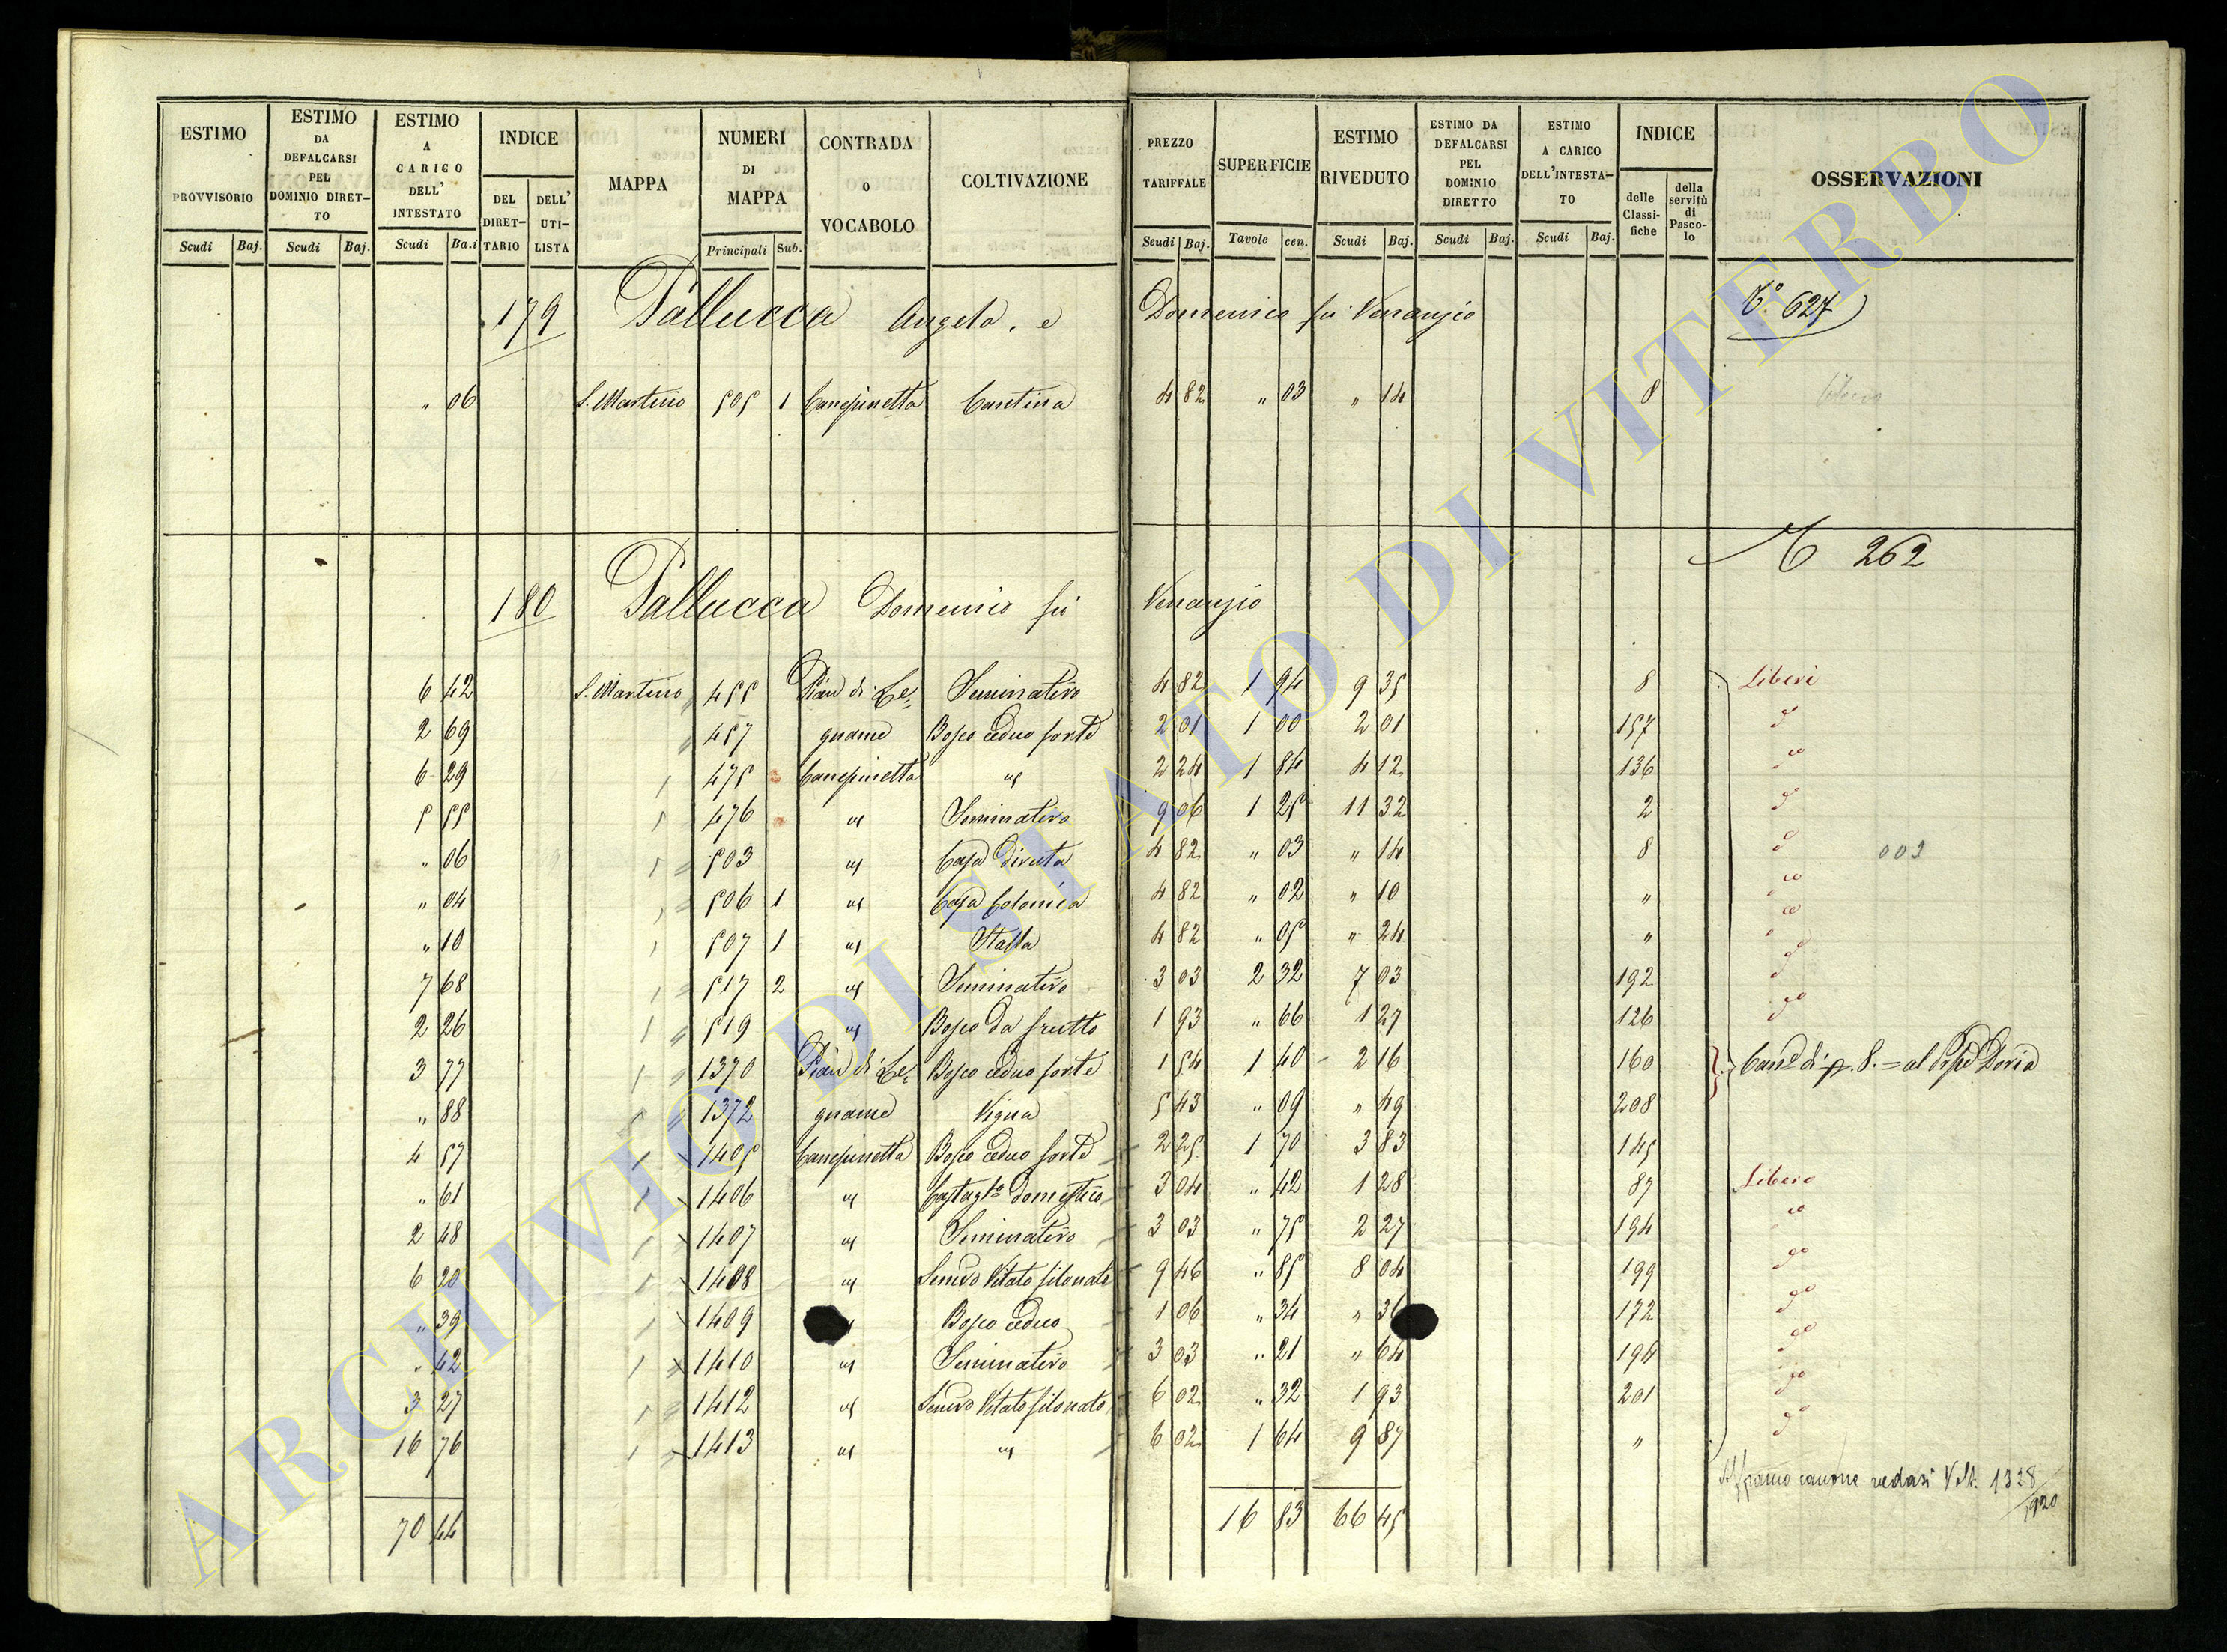 ESTIMO PROVVISORIO Scudi Baj. | ESTIMO DA DEFALCARSI PEL DOMINIO DIRET-TO Scudi Baj. | ESTIMO A CARICO DELL' INTESTATO Scudi Ba.i | INDICE DEL DIRET-TARIO DELL' UTI-LISTA | MAPPA | NUMERI DI MAPPA Principali Sub. | CONTRADA O VOCABOLO | COLTIVAZIONE | PREZZO TARIFFALE Scudi Baj. | SUPERFICIE Tavole cen. | ESTIMO RIVEDUTO Scudi Baj. | ESTIMO DA DEFALCARSI PEL DOMINIO DIRETTO Scudi Baj. | ESTIMO A CARICO DELL'INTESTA-TO Scudi Baj. | INDICE delle Classi-fiche della servitù di Pasco-lo | OSSERVAZIONI
179 Pallucca Angela, e Domenico fu Venanzio 627
" 06 S. Martino 505 1 Canepinetta Cantina 4 82 " 03 " 14 8 Libero
262
180 Pallucca Domenico fu Venanzio
6 42 S. Martino 455 Pian di Le= Seminativo 4 82 1 94 9 35 8 Liberi
2 69 457 gname Bosco ceduo forte 2 01 1 00 2 01 157
6 29 475 Canepinetta " 2 24 1 84 4 12 136
5 55 476 " Seminativo 9 06 1 25 11 32 2
" 06 503 " Casa diruta 4 82 " 03 " 14 8 003
" 04 506 1 " Casa Colonica 4 82 " 02 " 10 "
" 10 507 1 " Stalla 4 82 " 05 " 24 "
7 68 517 2 " Seminativo 3 03 2 32 7 03 192
2 26 519 " Bosco da frutto 1 93 " 66 1 27 126
3 77 1370 Pian di Le= Bosco ceduo forte 1 54 1 40 2 16 160 Can.e di p. 8. = al Doria
" 88 1372 gname Vigna 5 43 " 09 " 49 208
4 57 1405 Canepinetta Bosco ceduo forte 2 25 1 70 3 83 145
" 61 1406 " Castag.to domestico 3 04 " 42 1 28 87 Libero
2 48 1407 " Seminativo 3 03 " 75 2 27 194
6 20 1408 " Semvo Vitato filonato 9 46 " 85 8 04 199
" 39 1409 Bosco ceduo 1 06 " 34 " 36 172
" 42 1410 " Seminativo 3 03 " 21 " 64 194
3 27 1412 " Semvo Vitato filonato 6 02 " 32 1 93 201
16 76 1413 " " 6 02 1 64 9 87 "
Affranco canone vedasi Volt. 1328/920
70 44 16 83 66 45
ARCHIVIO DI STATO DI VITERBO